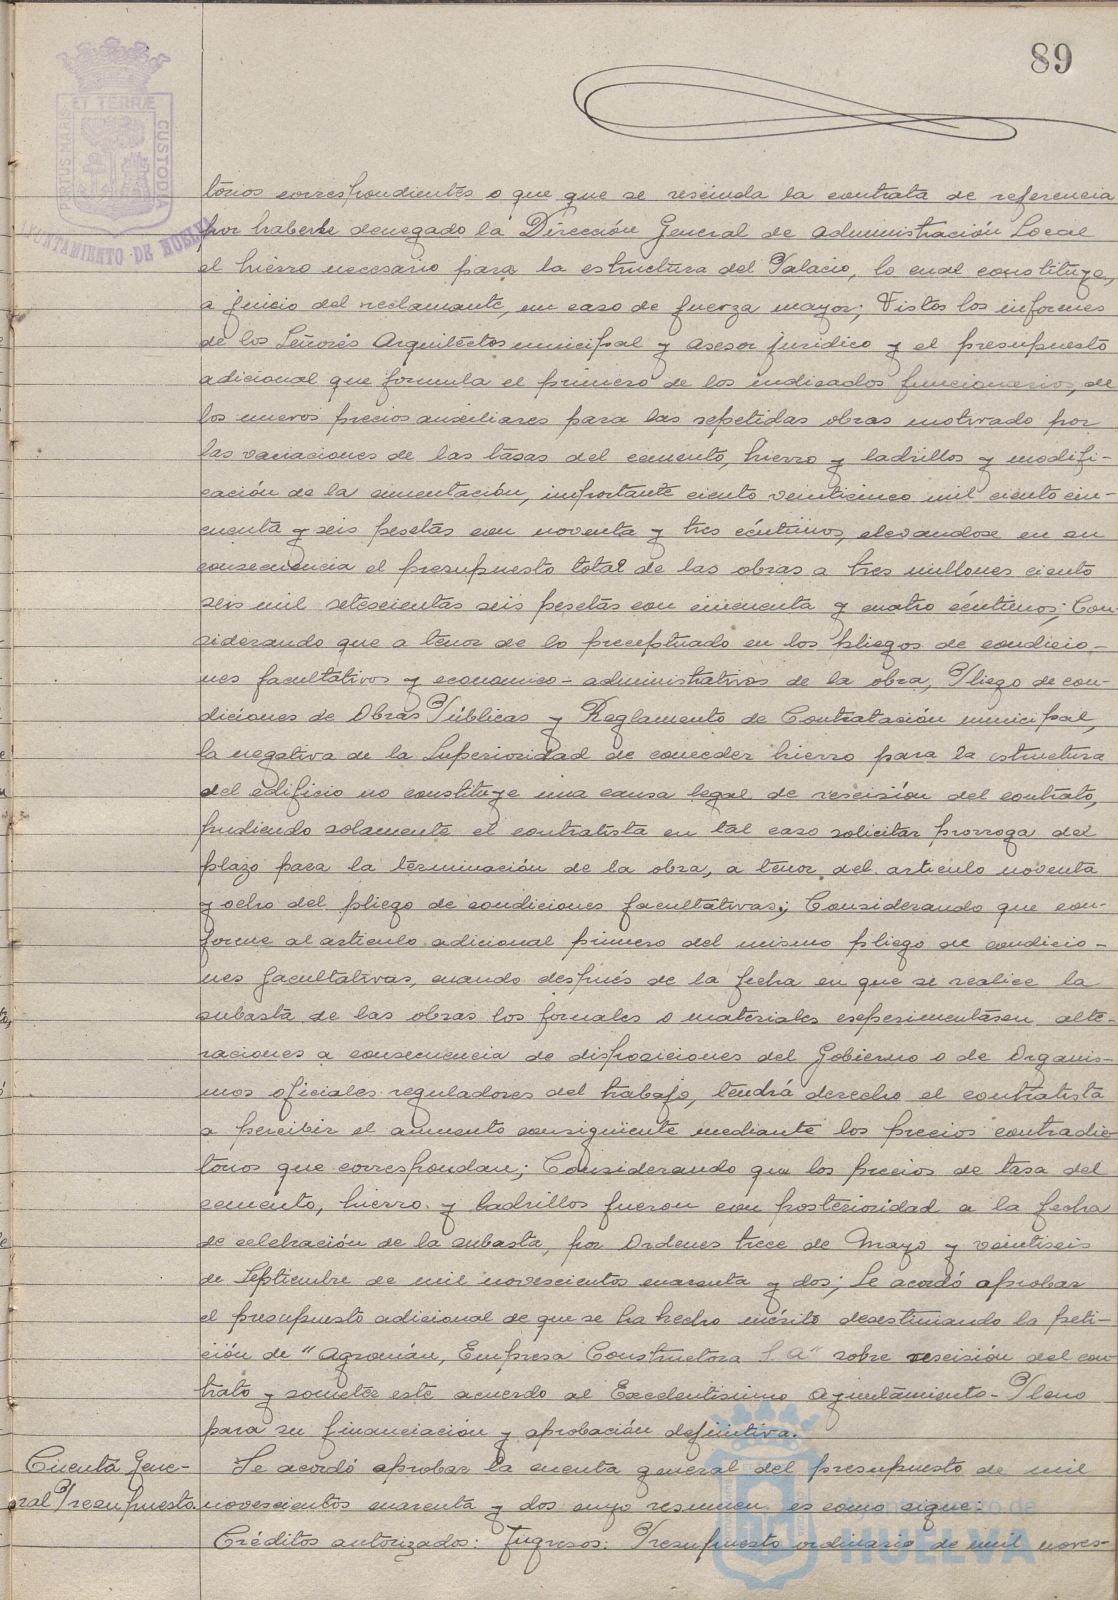 89
PORTUS MARIS ET TERRÆ CUSTODIA
AYUNTAMIENTO DE HUELVA
torios correspondientes o que que se rescinda la contrata de referencia
por haberle denegado la Dirección General de Administración Local
el hierro necesario para la estructura del Palacio, lo cual constituye,
a juicio del reclamante, un caso de fuerza mayor; Vistos los informes
de los Señores Arquitectos municipal y asesor jurídico y el presupuesto
adicional que formula el primero de los indicados funcionarios, de
los nuevos precios auxiliares para las repetidas obras motivado por
las variaciones de las tasas del cemento, hierro y ladrillos y modifi-
cación de la cimentación, importante ciento veinticinco mil ciento cin-
cuenta y seis pesetas con noventa y tres céntimos, elevandose en su
consecuencia el presupuesto total de las obras a tres millones ciento
seis mil setescientas seis pesetas con cincuenta y cuatro céntimos; Con-
siderando que a tenor de lo preceptuado en los pliegos de condicio-
nes facultativos y economico-administrativos de la obra, Pliego de con-
diciones de Obras Públicas y Reglamento de Contratación municipal,
la negativa de la Superioridad de conceder hierro para la estructura
del edificio no constituye una causa legal de rescisión del contrato,
pudiendo solamente el contratista en tal caso solicitar prorroga del
plazo para la terminación de la obra, a tenor del articulo noventa
y ocho del pliego de condiciones facultativas; Considerando que con-
forme al articulo adicional primero del mismo pliego de condicio-
nes facultativas, cuando después de la fecha en que se realice la
subasta de las obras los jornales o materiales esperimentasen alte-
raciones a consecuencia de disposiciones del Gobierno o de Organis-
mos oficiales reguladores del trabajo, tendrá derecho el contratista
a percibir el aumento consiguiente mediante los precios contradic-
torios que correspondan; Considerando que los precios de tasa del
cemento, hierro y ladrillos fueron con posterioridad a la fecha
de celebración de la subasta, por Ordenes trece de Mayo y veintiseis
de Septiembre de mil novescientos cuarenta y dos; Se acordó aprobar
el presupuesto adicional de que se ha hecho mérito desestimando la peti-
ción de "Agromán, Empresa Constructora S A" sobre rescisión del con-
trato y somete este acuerdo al Excelentisimo Ayuntamiento-Pleno
para su financiación y aprobación definitiva.
Cuenta Gene-
ral Presupuesto
Se acordó aprobar la cuenta general del presupuesto de mil
novescientos cuarenta y dos cuyo resumen es como sigue:
Créditos autorizados: Ingresos: Presupuesto ordinario de mil noves-
Ayuntamiento de
HUELVA